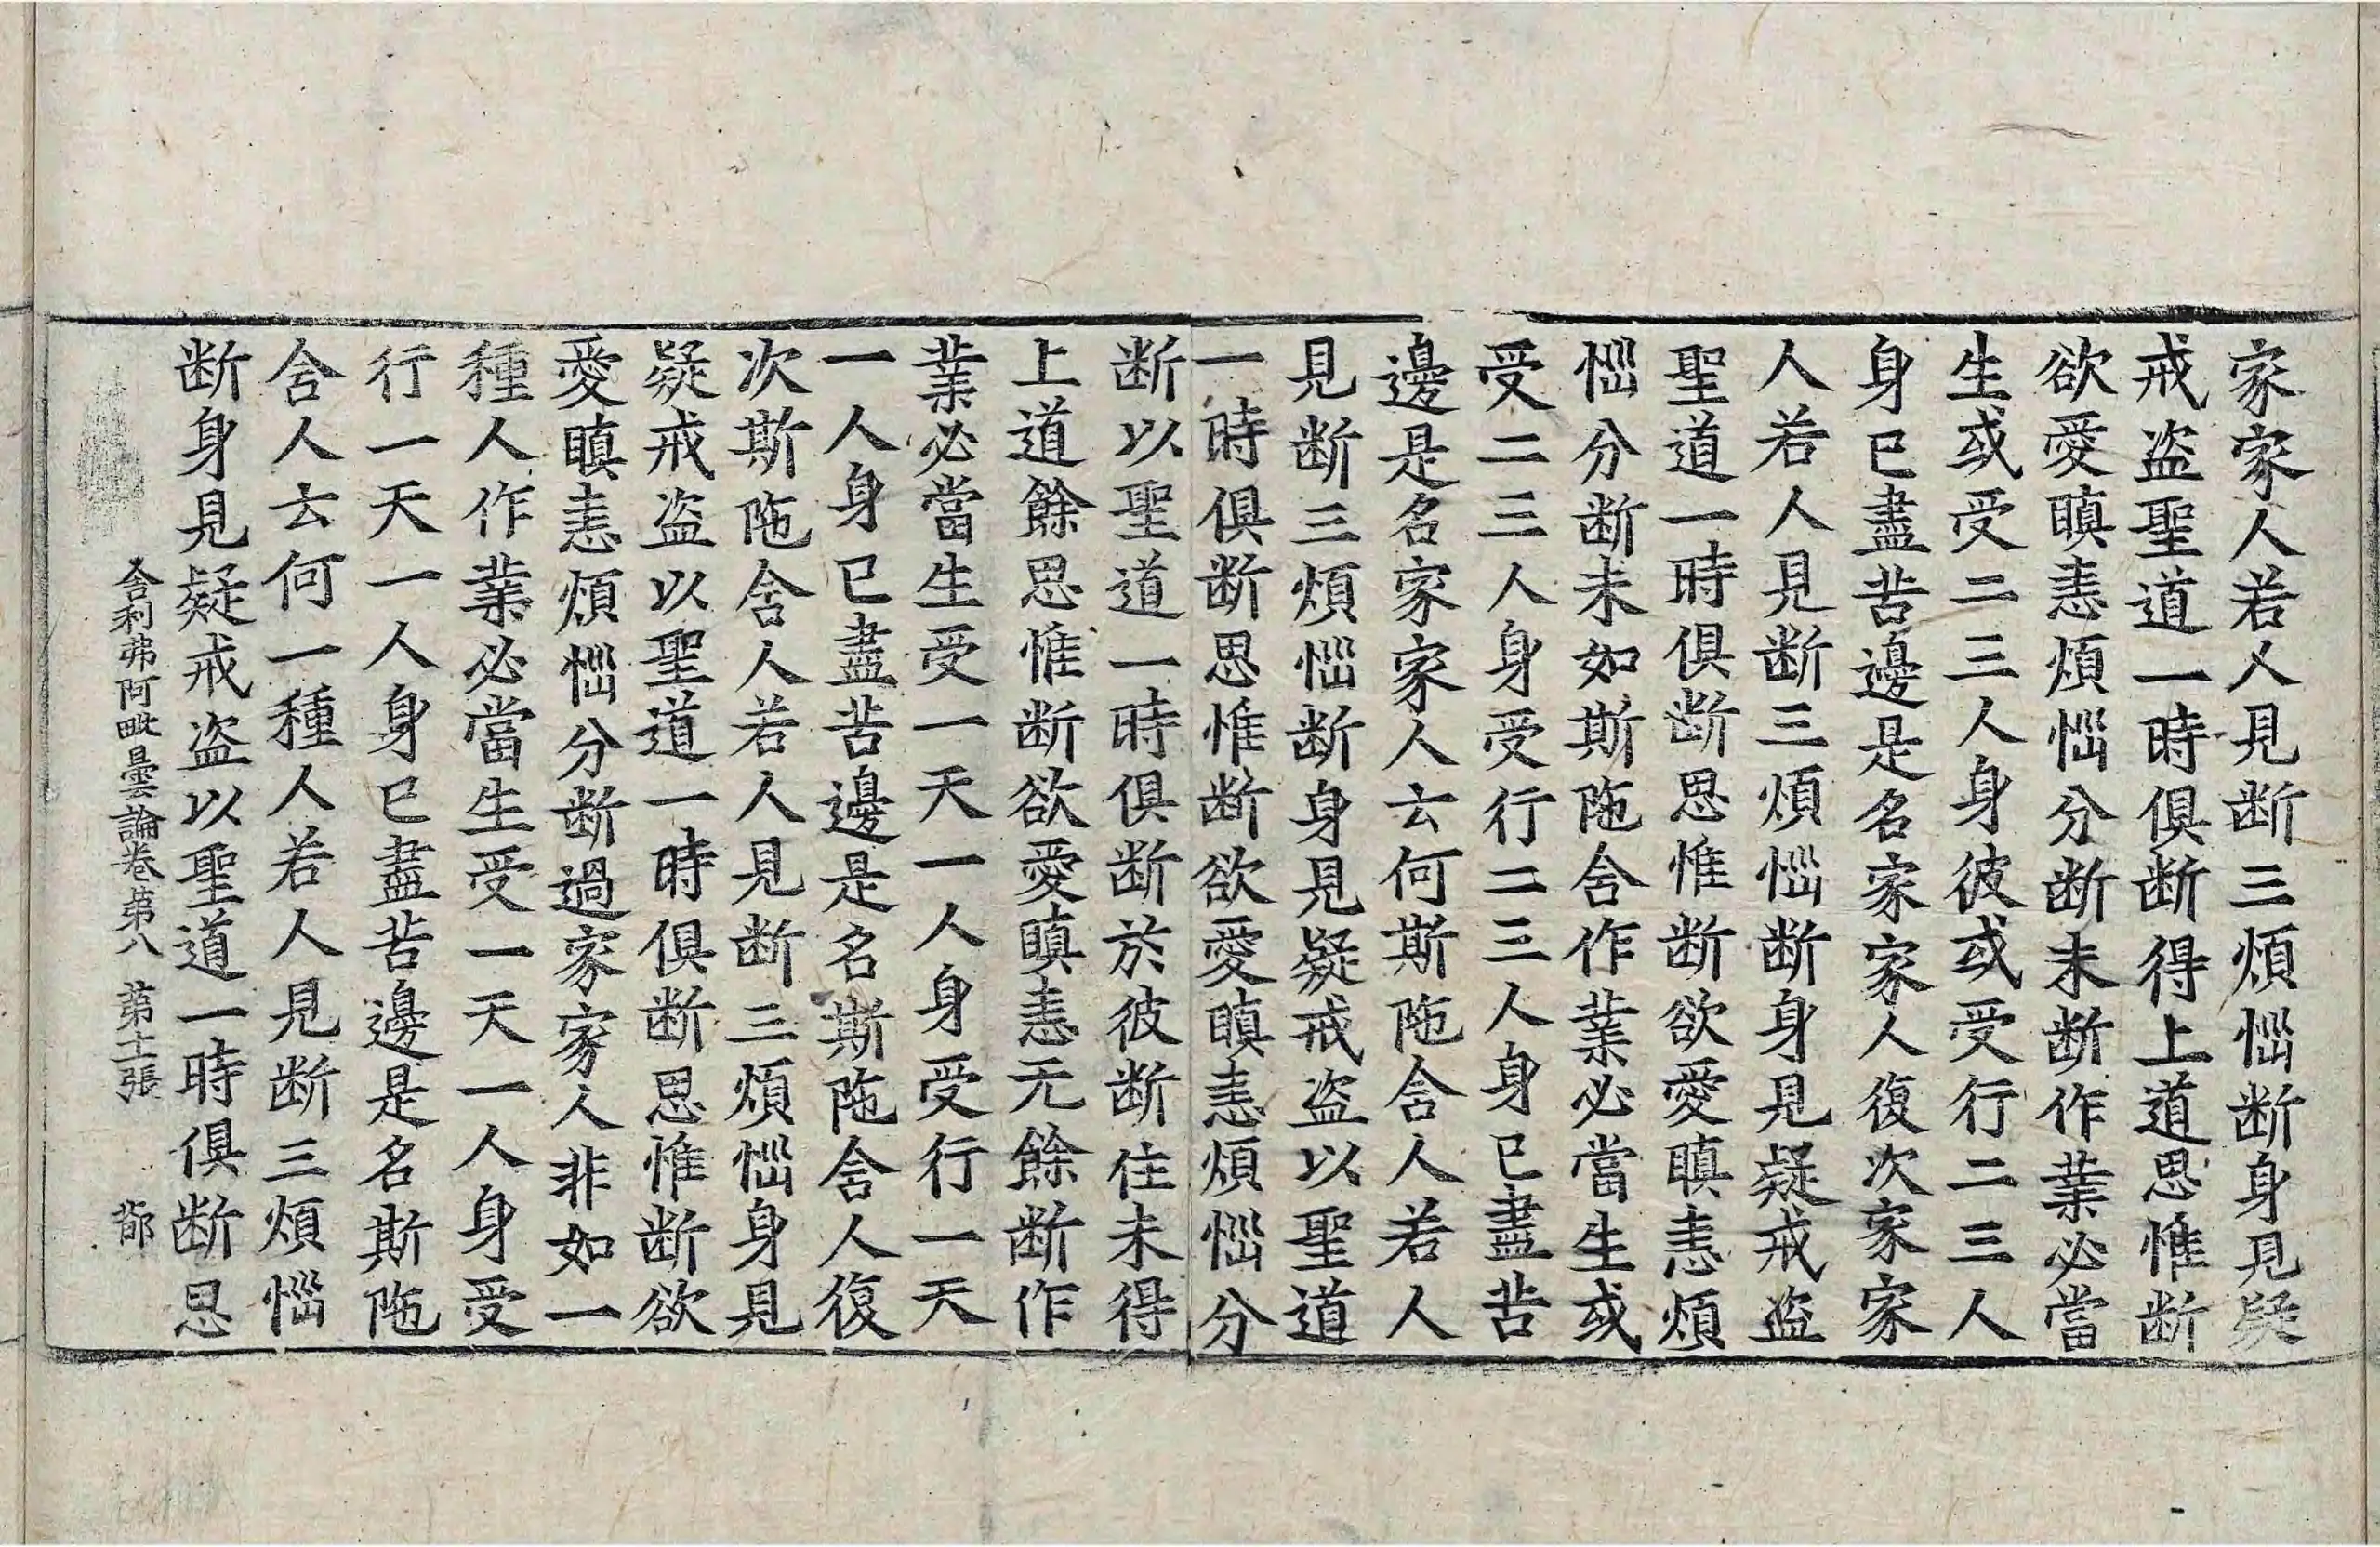 家家人若人見断三煩惱断身見疑
戒盗聖道一時俱断得上道思惟断
欲愛瞋恚煩惱分断未断作業必當
生或受二三人身彼或受行二三人
身已盡苦邊是名家家人復次家家
人若人見断三煩惱断身見疑戒盗
聖道一時俱断思惟断欲愛瞋恚煩
惱分断未如斯陁舍作業必當生或
受二三人身受行二三人身已盡苦
邊是名家家人云何斯陁含人若人
見断三煩惱断身見疑戒盗以聖道
一時俱断思惟断欲愛瞋恚煩惱分
断以聖道一時俱断於彼断住未得
上道餘思惟断欲愛瞋恚无餘断作
業必當生受一天一人身受行一天
一人身已盡苦邊是名斯陁含人復
次斯陁含人若人見断三煩惱身見
疑戒盗以聖道一時俱断思惟断欲
愛瞋恚煩惱分断過家家人非如一
種人作業必當生受一天一人身受
行一天一人身已盡苦邊是名斯陁
含人云何一種人若人見断三煩惱
断身見疑戒盗以聖道一時俱断思
舍利弗阿毗曇論卷苐八 苐士張